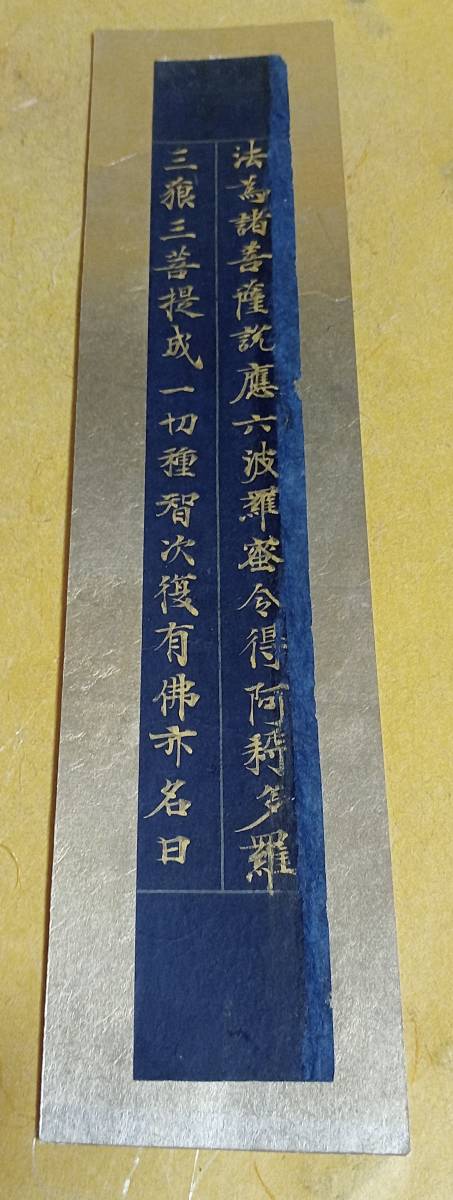 法為諸菩薩説應六波羅蜜令得阿耨多羅
三藐三菩提成一切種智次復有佛亦名日